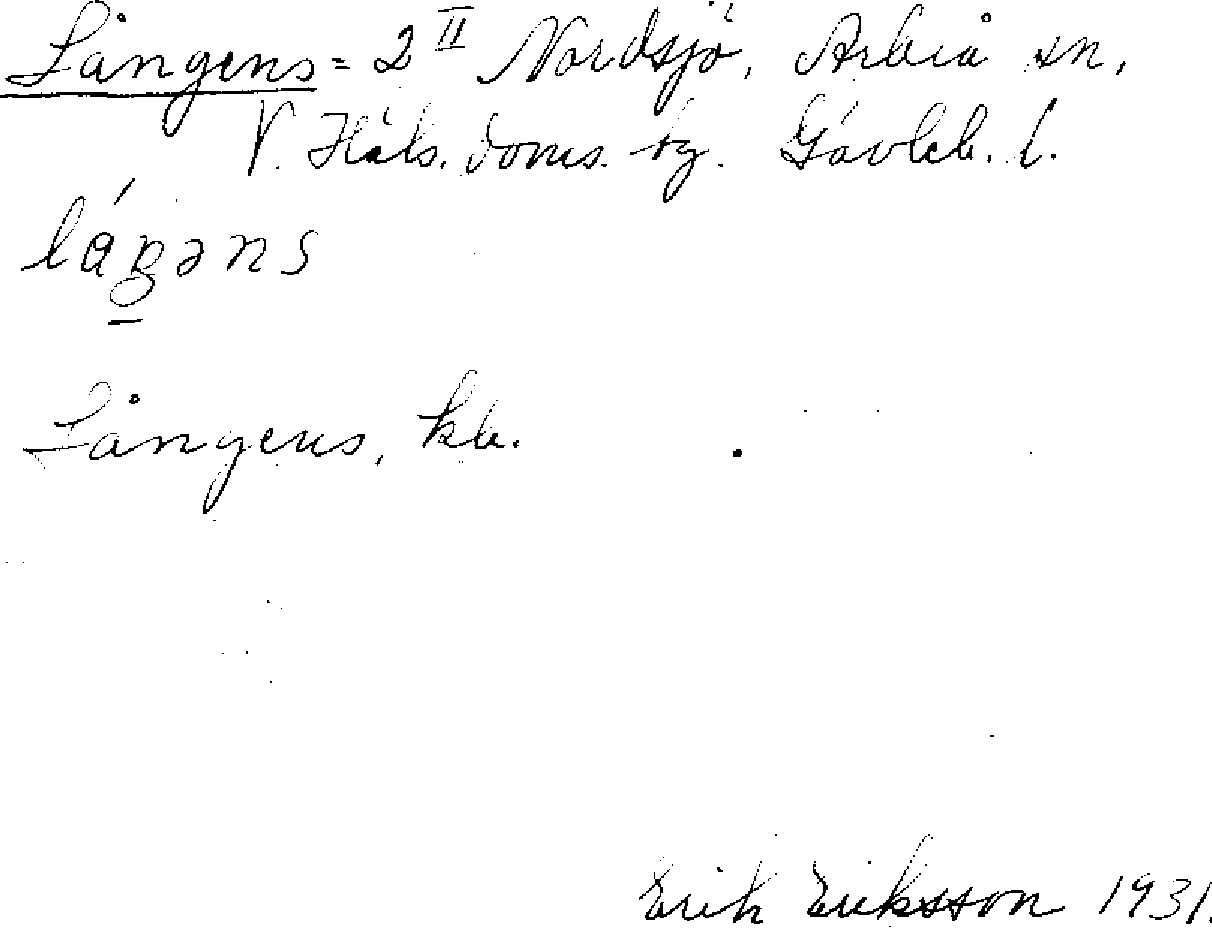 Långens = 2 II Nordsjö, Arbrå sn,
V. Häls. doms. bg. Gävleb. l.
Långens, kb.
Erik Eriksson 1931.